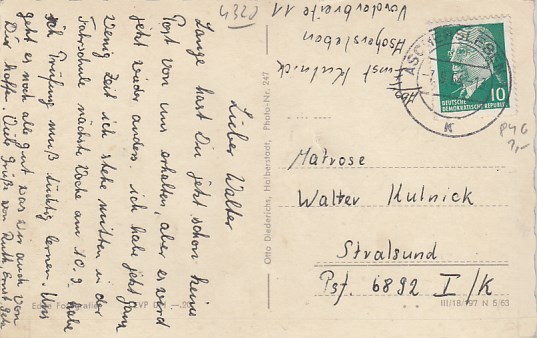 Lieber Walter
Lange hast Du jetzt schon keine
Post von uns erhalten, aber es wird
jetzt wieder anders. ich habe jetzt ganz
wenig Zeit ich stehe mitten in der
Fahrschule nächste Woche am 10.9. habe
ich Prüfung muß tüchtig lernen. Uns
geht es noch alle gut was wir auch von
Dir hoffen. Viele Grüße von Ruth Ernst
Echte Fotografie
Otto Diederichs, Halberstadt, Photo-Nr. 247
4320
Abs. Ernst Kulnick
Aschersleben
Vorderbreite 11
ASCHERSLEBEN
10
DEUTSCHE
DEMOKRATISCHE REPUBLIK
K
P46
2,-
Matrose
Walter Kulnick
Stralsund
Psf. 6892 I/K
III/18/197 N 5/63